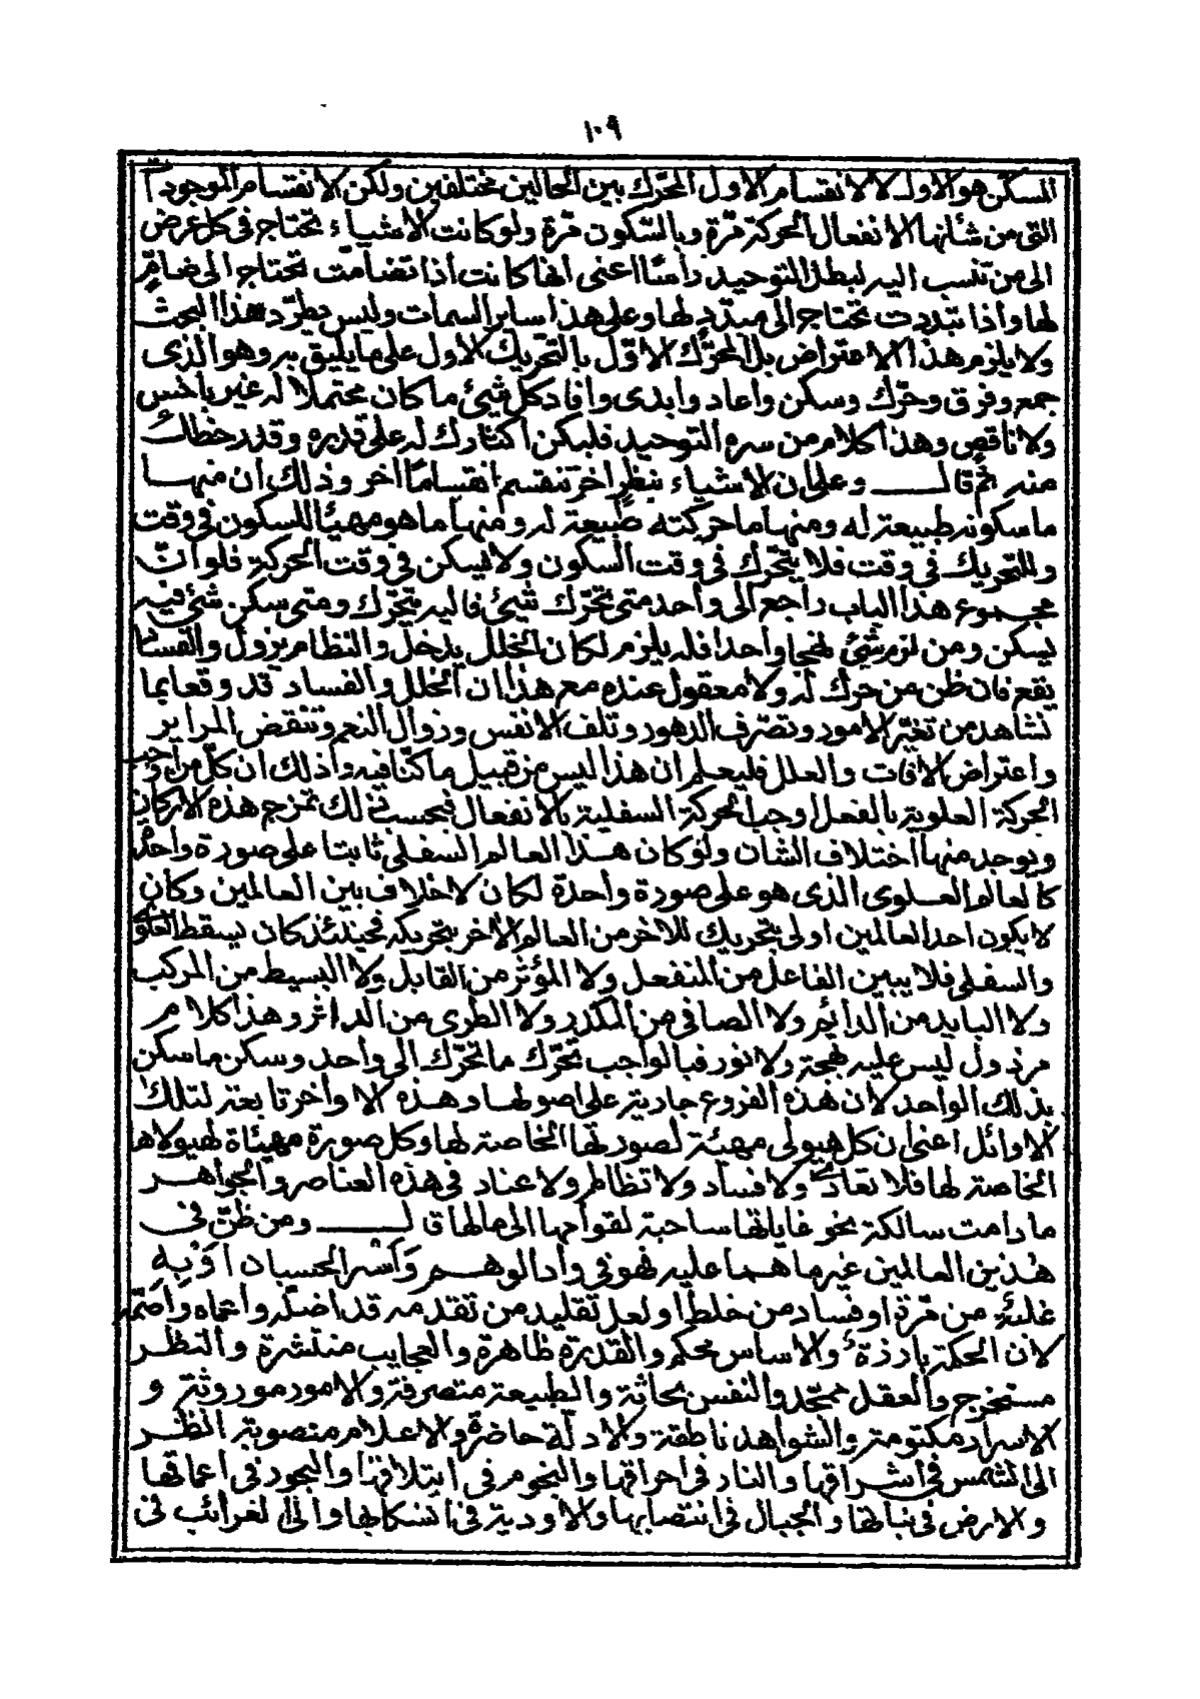 ١٠٩
المسكن هو الاول لا لانقسام الاول المحرك بين الحالين مختلفين ولكن لانقسام الموجودات
التى من شأنها الانفعال الحركة مرّة وبالسّكون مرّة ولو كانت الأشياء تحتاج فى كل عرض
الى من تنسب اليه لبطل التوحيد رأسًا اعنى انها كانت اذا تضامّت تحتاج الى ضامّ
لها واذا تبددت تحتاج الى مبدّد لها وعلى هذا ساير السمات وليس يطّرد هذا البحث
ولا يلزم هذا الاعتراض بل المحرّك الاوّل بالتحريك الاول على ما يليق به وهو الذى
جمع وفرق وحرّك وسكن واعاد وابدى وافاد كل شيئ ما كان محتملا له غير باخس
ولا ناقص وهذا كلام من سره التوحيد فليكن اكتادك له على قدره وقدر حظك
منه ثم قال وعلى ان الأشياء بنظر اخر تنقسم انقسامًا اخر وذلك ان منها
ما سكونه طبيعة له ومنها ما حركته طبيعة له ومنها ما هو مهيئا للسكون فى وقت
وللتحريك فى وقت فلا يتحرّك فى وقت السكون ولا يسكن فى وقت الحركة فلو انّ
مجموع هذا الباب راجع الى واحد متى تحرّك شيئ فاليه يتحرّك ومتى سكن شئ فيه
يسكن ومن لزم شئ لهجا واحدا فله يلزم لكان الخلل يدخل والنظام يزول والفساد
يقع فان ظن من حرك له ولا معقول عنده مع هذا ان الخلل والفساد قد وقعا بما
نشاهد من تغيّر الامور وتصرّف الدهور وتلف الانفس وزوال النعم وتنقض المراير
واعتراض الآفات والعلل فليعلم ان هذا ليس من قبيل ما كنّا فيه وذلك ان كلّ من اوجب
الحركة العلوية بالفعل اوجب الحركة السفلية بالانفعال فبحسب ذلك تمزج هذه الاركان
ويوجد منها اختلاف الشان ولو كان هذا العالم السفلى ثابتا على صورة واحدة
كالعالم العلوى الذى هو على صورة واحدة لكان لا خلاف بين العالمين وكان
لا يكون احد العالمين اولى بتحريك للاخر من العالم الآخر بتحريكه فحينئذ كان يسقط العلو
والسفلى فلا يبين الفاعل من المنفعل ولا المؤثر من القابل ولا البسيط من المركب
ولا البايد من الدائم ولا الصافى من المكدر ولا الطرى من الداثر وهذا كلام
مرذول ليس عليه بهجة ولا نور فبالواجب تحرّك ما تحرّك الى واحد وسكن ما سكن
بذلك الواحد لان هذه الفروع جارية على اصولها وهذه الاواخر تابعة لتلك
الاوائل اعنى ان كل هيولى مهيئة لصورتها الخاصة لها وكل صورة مهيئاة لهيولاها
الخاصة لها فلا تعادى ولا فساد ولا تظالم ولا عناد فى هذه العناصر والجواهر
ما دامت سالكة نحو غاياتها ساحبة لقواحها الى مالها قال ومن ظنّ فى
هذين العالمين غير ما هما عليه فهو فى وادالوهم وأسر الحسبان اوبه
غلبة من مرّة او فساد من خلط او لعل تقليد من تقدمه قد اضلّه واعماه واصمّه
لان الحكمة بارزة والاساس محكم والقدرة ظاهرة والعجايب منتشرة والنظر
مستخرج والعقل ممتحد والنفس بحاثة والطبيعة متصرفة والامور موروثة و
الاسرار مكتومة والشواهد ناطقة والادلّة حاضرة والاعلام منصوبة انظر
الى الشمس فى اشراقها والنار فى احراقها والنجوم فى ايتلاقها والبحور فى اعماقها
والارض فى نباتها والجبال فى انتصابها والاودية فى انسكابها والى الغرائب فى